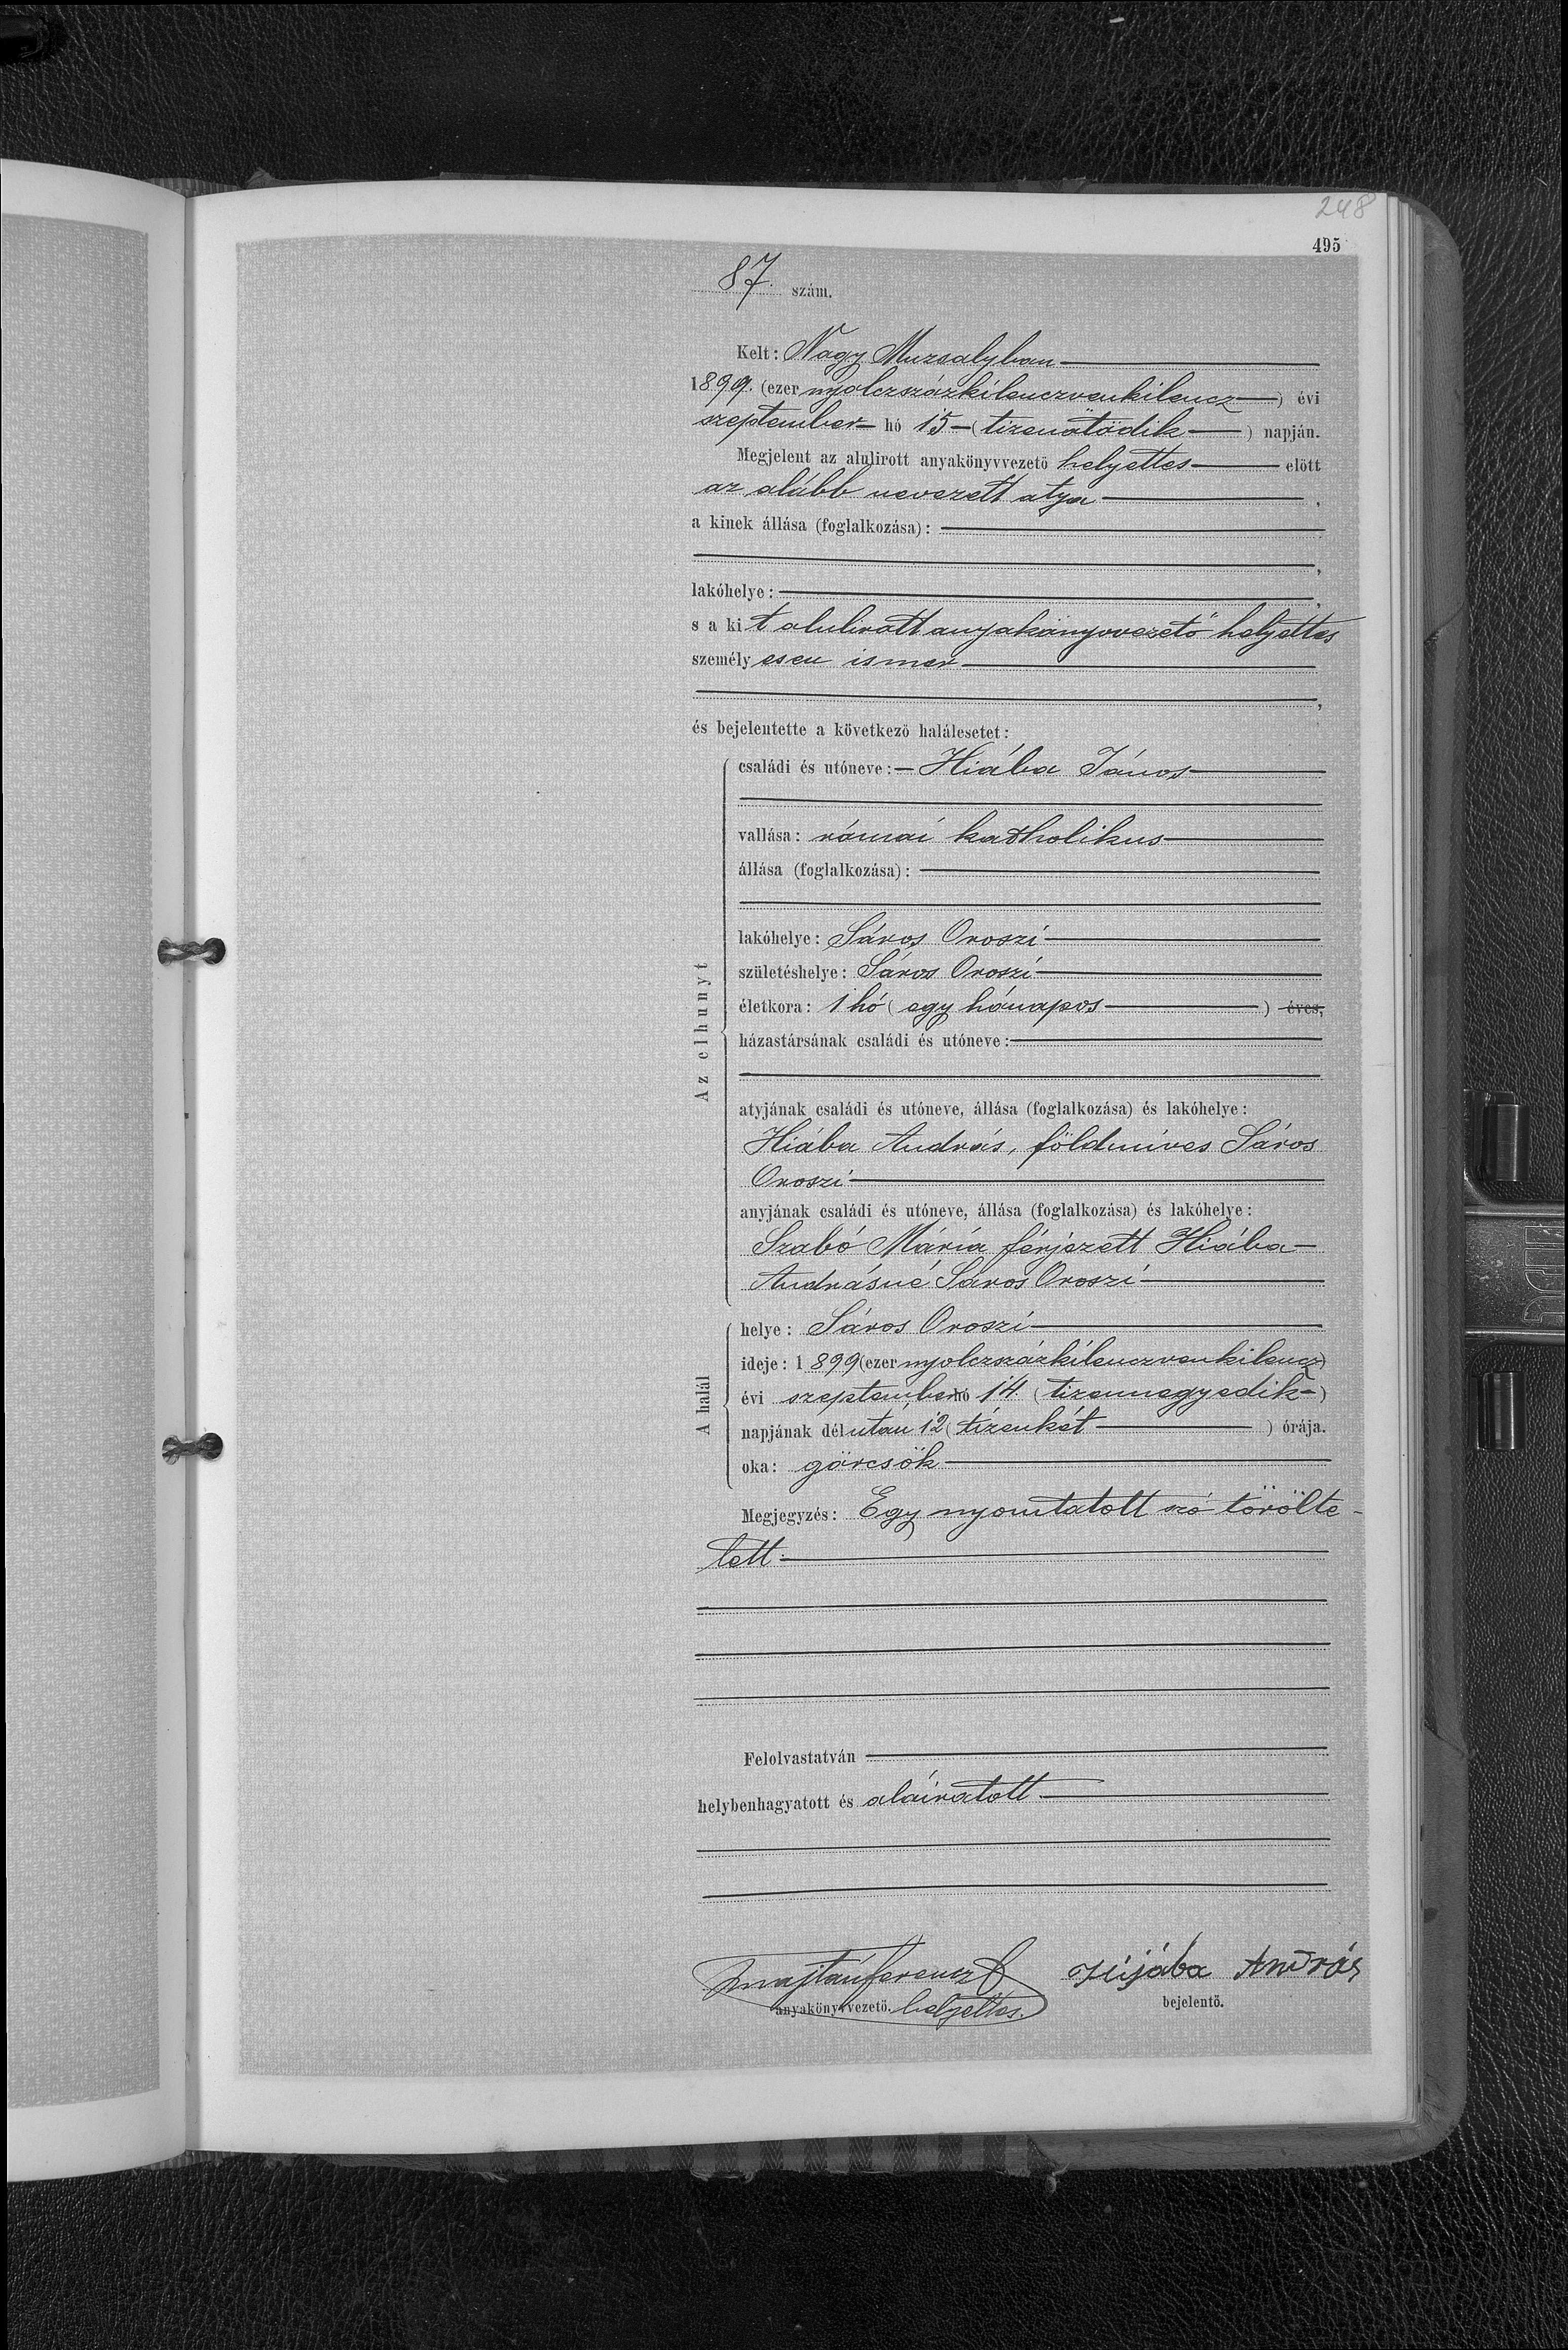 248
495
87. szám.
Kelt: Nagy Muzsalyban
1899. (ezer nyolczszázkilenczvenkilencz) évi
szeptember hó 15 (tizenötödik) napján.
Megjelent az alulirott anyakönyvvezető helyettes előtt
az alább nevezett atya,
a kinek állása (foglalkozása):
,
lakóhelye: ,
s a kit alulirott anyakönyvvezető helyettes
személyesen ismer
,
és bejelentette a következő halálesetet:
Az elhunyt
családi és utóneve: Hiába János
vallása: római katholikus
állása (foglalkozása):
lakóhelye: Sáros Oroszi
születéshelye: Sáros Oroszi
életkora: 1 hó (egy hónapos) éves,
házastársának családi és utóneve:
atyjának családi és utóneve, állása (foglalkozása) és lakóhelye:
Hiába András, földmíves Sáros
Oroszi
anyjának családi és utóneve, állása (foglalkozása) és lakóhelye:
Szabó Mária férjezett Hiába
Andrásné Sáros Oroszi
A halál
helye: Sáros Oroszi
ideje: 1899 (ezer nyolczszázkilenczvenkilencz)
évi szeptember hó 14. (tizennegyedik)
napjának délután 12 (tizenkét) órája.
oka: görcsök
Megjegyzés: Egy nyomtatott szó törölte-
tett.
Felolvastatván
helybenhagyatott és aláíratott
Ferencz Hijába András
anyakönyvvezető. helyettes. bejelentő.